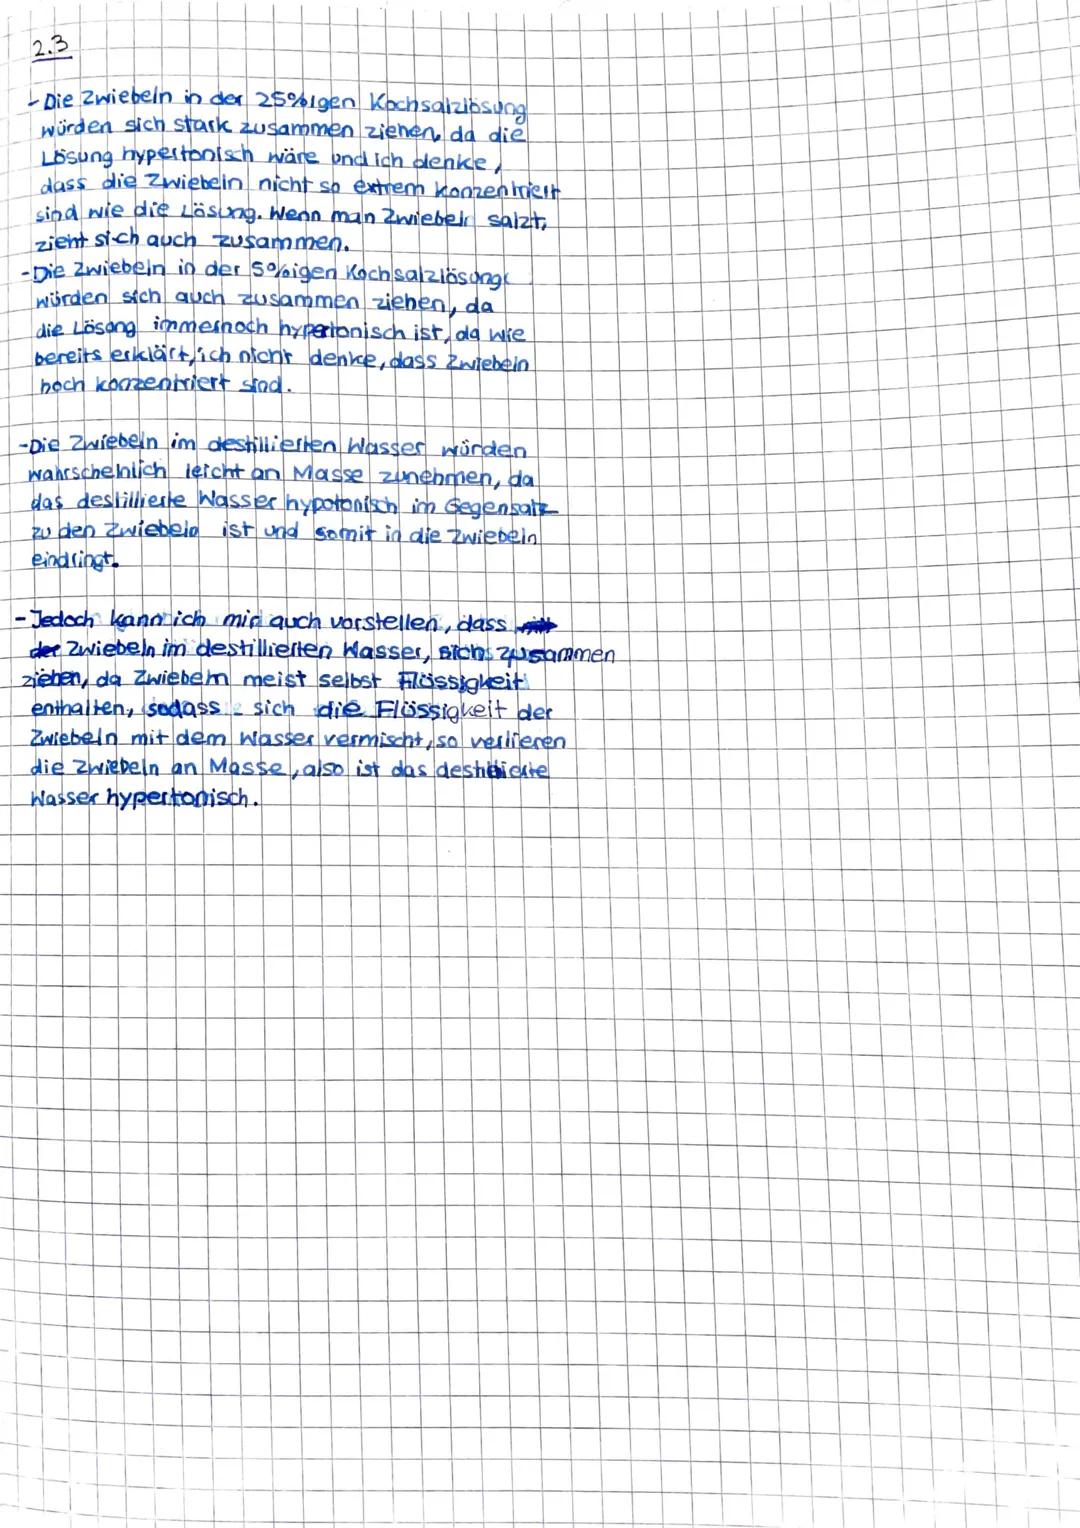 2.3
- Die Zwiebeln in der 25%igen Kochsalzlösung
würden sich stark zusammen ziehen, da die
Lösung hypertonisch wäre und ich denke,
dass die Zwiebeln nicht so extrem konzentriert
sind wie die Lösung. Wenn man Zwiebeln salzt,
zieht sich auch zusammen.
- Die Zwiebeln in der 5%igen Kochsalzlösung
würden sich auch zusammen ziehen, da
die Lösung immernoch hypertonisch ist, da wie
bereits erklärt, ich nicht denke, dass Zwiebeln
hoch konzentriert sind.
- Die Zwiebeln im destillierten Wasser würden
wahrscheinlich leicht an Masse zunehmen, da
das destillierte Wasser hypotonisch im Gegensatz
zu den Zwiebeln ist und somit in die Zwiebeln
eindringt.
- Jedoch kann ich mir auch vorstellen, dass
der Zwiebeln im destillierten Wasser, sich zusammen
ziehen, da Zwiebeln meist selbst Flüssigkeit
enthalten, sodass sich die Flüssigkeit der
Zwiebeln mit dem Wasser vermischt, so verlieren
die Zwiebeln an Masse, also ist das destillierte
Wasser hypertonisch.